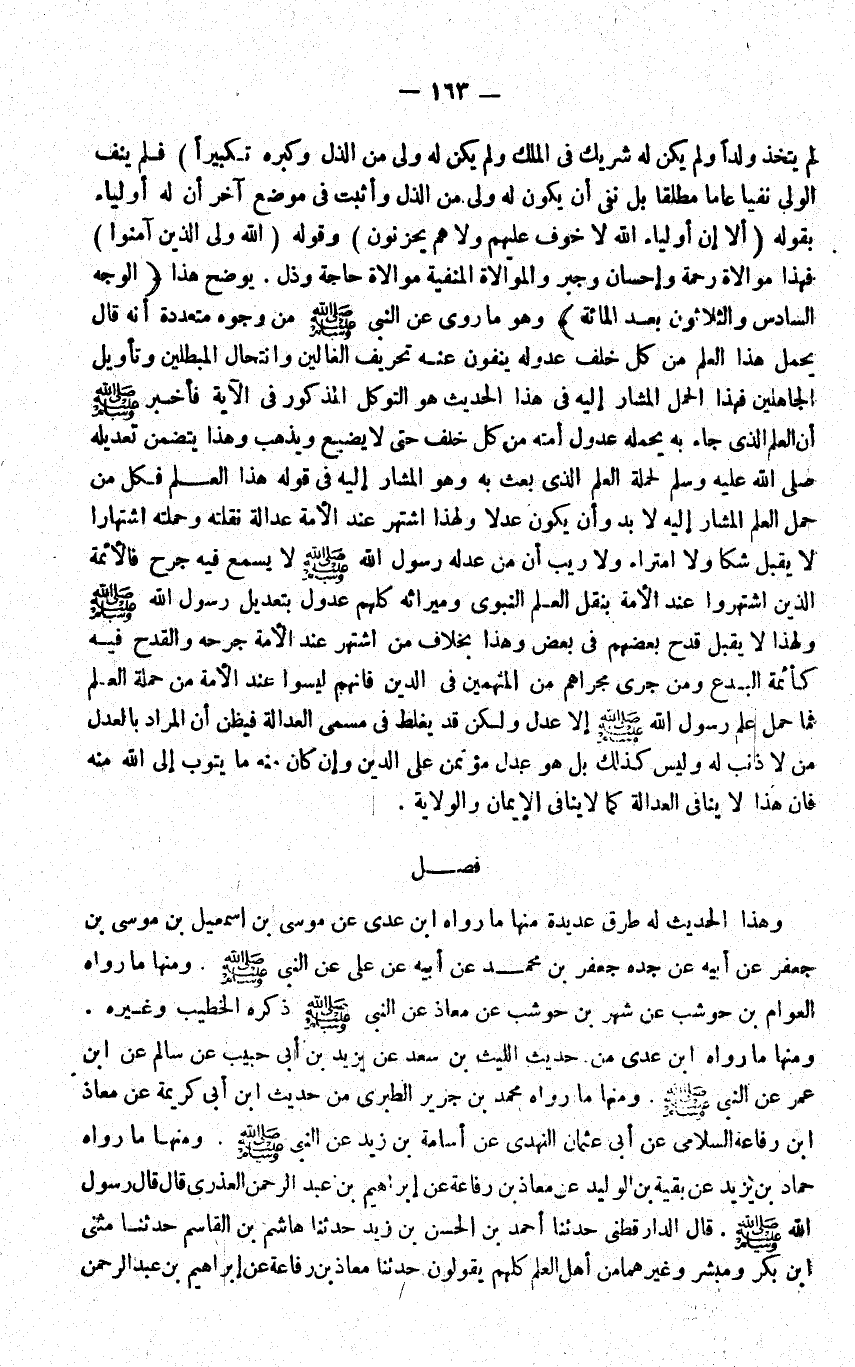 — ١٦٣ —
لم يتخذ ولداً ولم يكن له شريك فى الملك ولم يكن له ولى من الذل وكبره تـكبيراً ) فـلم ينف
الولى نفيا عاما مطلقا بل نفى أن يكون له ولى من الذل وأثبت فى موضع آخر أن له أولياء
بقوله ( ألا إن أولياء الله لا خوف عليهم ولا هم يحزنون ) وقوله ( الله ولى الذين آمنوا )
فهذا موالاة رحمة وإحسان وجبر والموالاة المنفية موالاة حاجة وذل . يوضح هذا ﴿ الوجه
السادس والثلاثون بعـد المائة ﴾ وهو ما روى عن النبى ﷺ من وجوه متعددة أنه قال
يحمل هذا العلم من كل خلف عدوله ينفون عنـه تحريف الغالين وانتحال المبطلين وتأويل
الجاهلين فهذا الحمل المشار إليه فى هذا الحديث هو التوكل المذكور فى الآية فأخـبر ﷺ
أن العلم الذى جاء به يحمله عدول أمته من كل خلف حتى لا يضيع ويذهب وهذا يتضمن تعديله
صلى الله عليه وسلم لحملة العلم الذى بعث به وهو المشار إليه فى قوله هذا العــلم فـكل من
حمل العلم المشار إليه لا بد وأن يكون عدلا ولهذا اشتهر عند الأمة عدالة نقلته وحملته اشتهارا
لا يقبل شكا ولا امتراء ولا ريب أن من عدله رسول الله ﷺ لا يسمع فيه جرح فالأئمة
الذين اشتهروا عند الأمة بنقل العـلم النبوى وميراثه كلهم عدول بتعديل رسول الله ﷺ
ولهذا لا يقبل قدح بعضهم فى بعض وهذا بخلاف من اشتهر عند الأمة جرحه والقدح فيـه
كـأئمة البـدع ومن جرى مجراهم من المتهمين فى الدين فانهم ليسوا عند الأمة من حملة العـلم
فما حمل علم رسول الله ﷺ إلا عدل ولـكن قد يغلط فى مسمى العدالة فيظن أن المراد بالعدل
من لا ذنب له وليس كـذلك بل هو عدل مؤتمن على الدين وإن كان منه ما يتوب إلى الله منه
فان هذا لا ينافى العدالة كما لا ينافى الإيمان والولاية .
فصــل
وهذا الحديث له طرق عديدة منها ما رواه ابن عدى عن موسى بن اسمعيل بن موسى بن
جعفر عن أبيه عن جده جعفر بن محمــد عن أبيه عن على عن النبى ﷺ . ومنها ما رواه
العوام بن حوشب عن شهر بن حوشب عن معاذ عن النبى ﷺ ذكره الخطيب وغـيره .
ومنها ما رواه ابن عدى من حديث الليث بن سعد عن يزيد بن أبى حبيب عن سالم عن ابن
عمر عن النبى ﷺ . ومنها ما رواه محمد بن جرير الطبرى من حديث ابن أبى كريمة عن معاذ
ابن رفاعة السلامى عن أبى عثمان النهدى عن أسامة بن زيد عن النبى ﷺ . ومنهـا ما رواه
حماد بن يزيد عن بقية بن الوليد عن معاذ بن رفاعة عن إبراهيم بن عبد الرحمن العذرى قال قال رسول
الله ﷺ . قال الدارقطنى حدثنا أحمد بن الحسن بن زيد حدثنا هاشم بن القاسم حدثنـا مثنى
ابن بكر ومبشر وغيرهما من أهل العلم كلهم يقولون حدثنا معاذ بن رفاعة عن إبراهيم بن عبد الرحمن